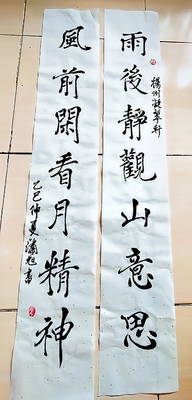 揚州凝翠軒
雨後靜觀山意思
風前閑看月精神
乙巳仲夏瀚旭書